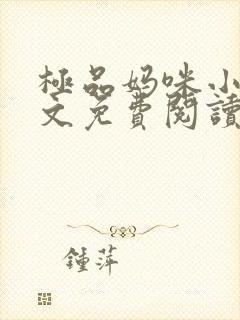 極品妈咪小
文免費閱讀
鍾萍